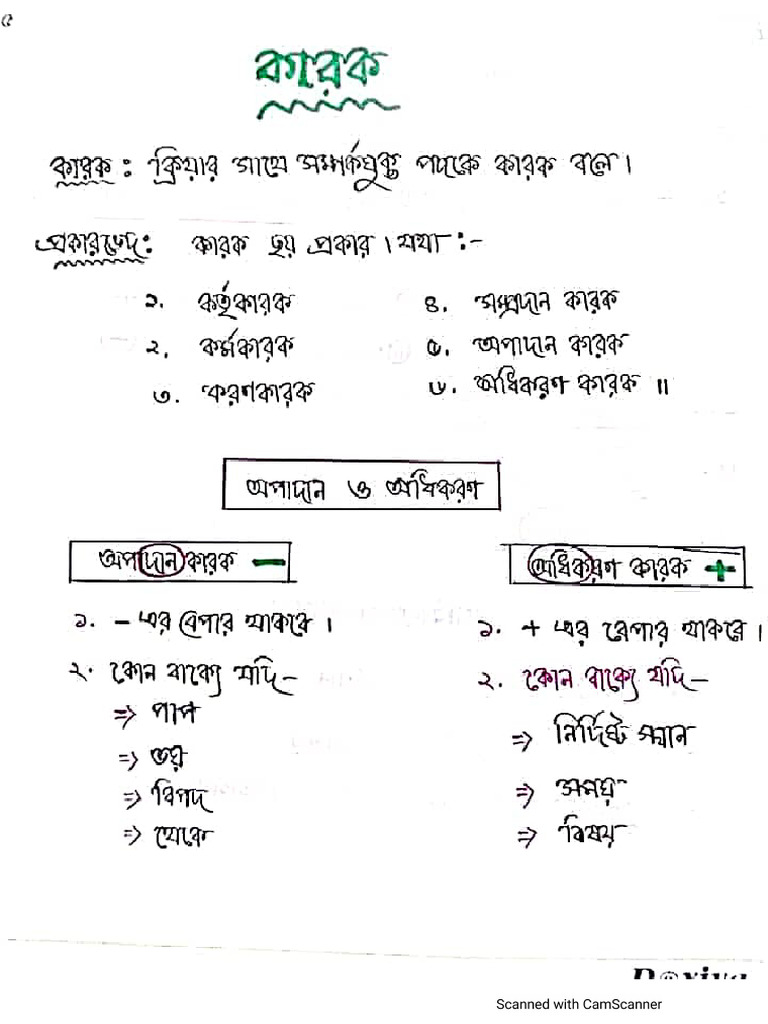 কারক
কারক : ক্রিয়ার সাথে সম্পর্কযুক্ত পদকে কারক বলে।
প্রকারভেদ : কারক ছয় প্রকার। যথা :-
১. কর্তৃকারক
২. কর্মকারক
৩. করণকারক
৪. সম্প্রদান কারক
৫. অপাদান কারক
৬. অধিকরণ কারক ॥
অপাদান ও অধিকরণ
অপাদান কারক −
১. − এর বেপার থাকবে।
২. কোন বাক্যে যদি −
⇒ পাপ
⇒ ভয়
⇒ বিপদ
⇒ থেকে
অধিকরণ কারক +
১. + এর বেপার থাকবে।
২. কোন বাক্যে যদি −
⇒ নির্দিষ্ট স্থান
⇒ সময়
⇒ বিষয়
Scanned with CamScanner